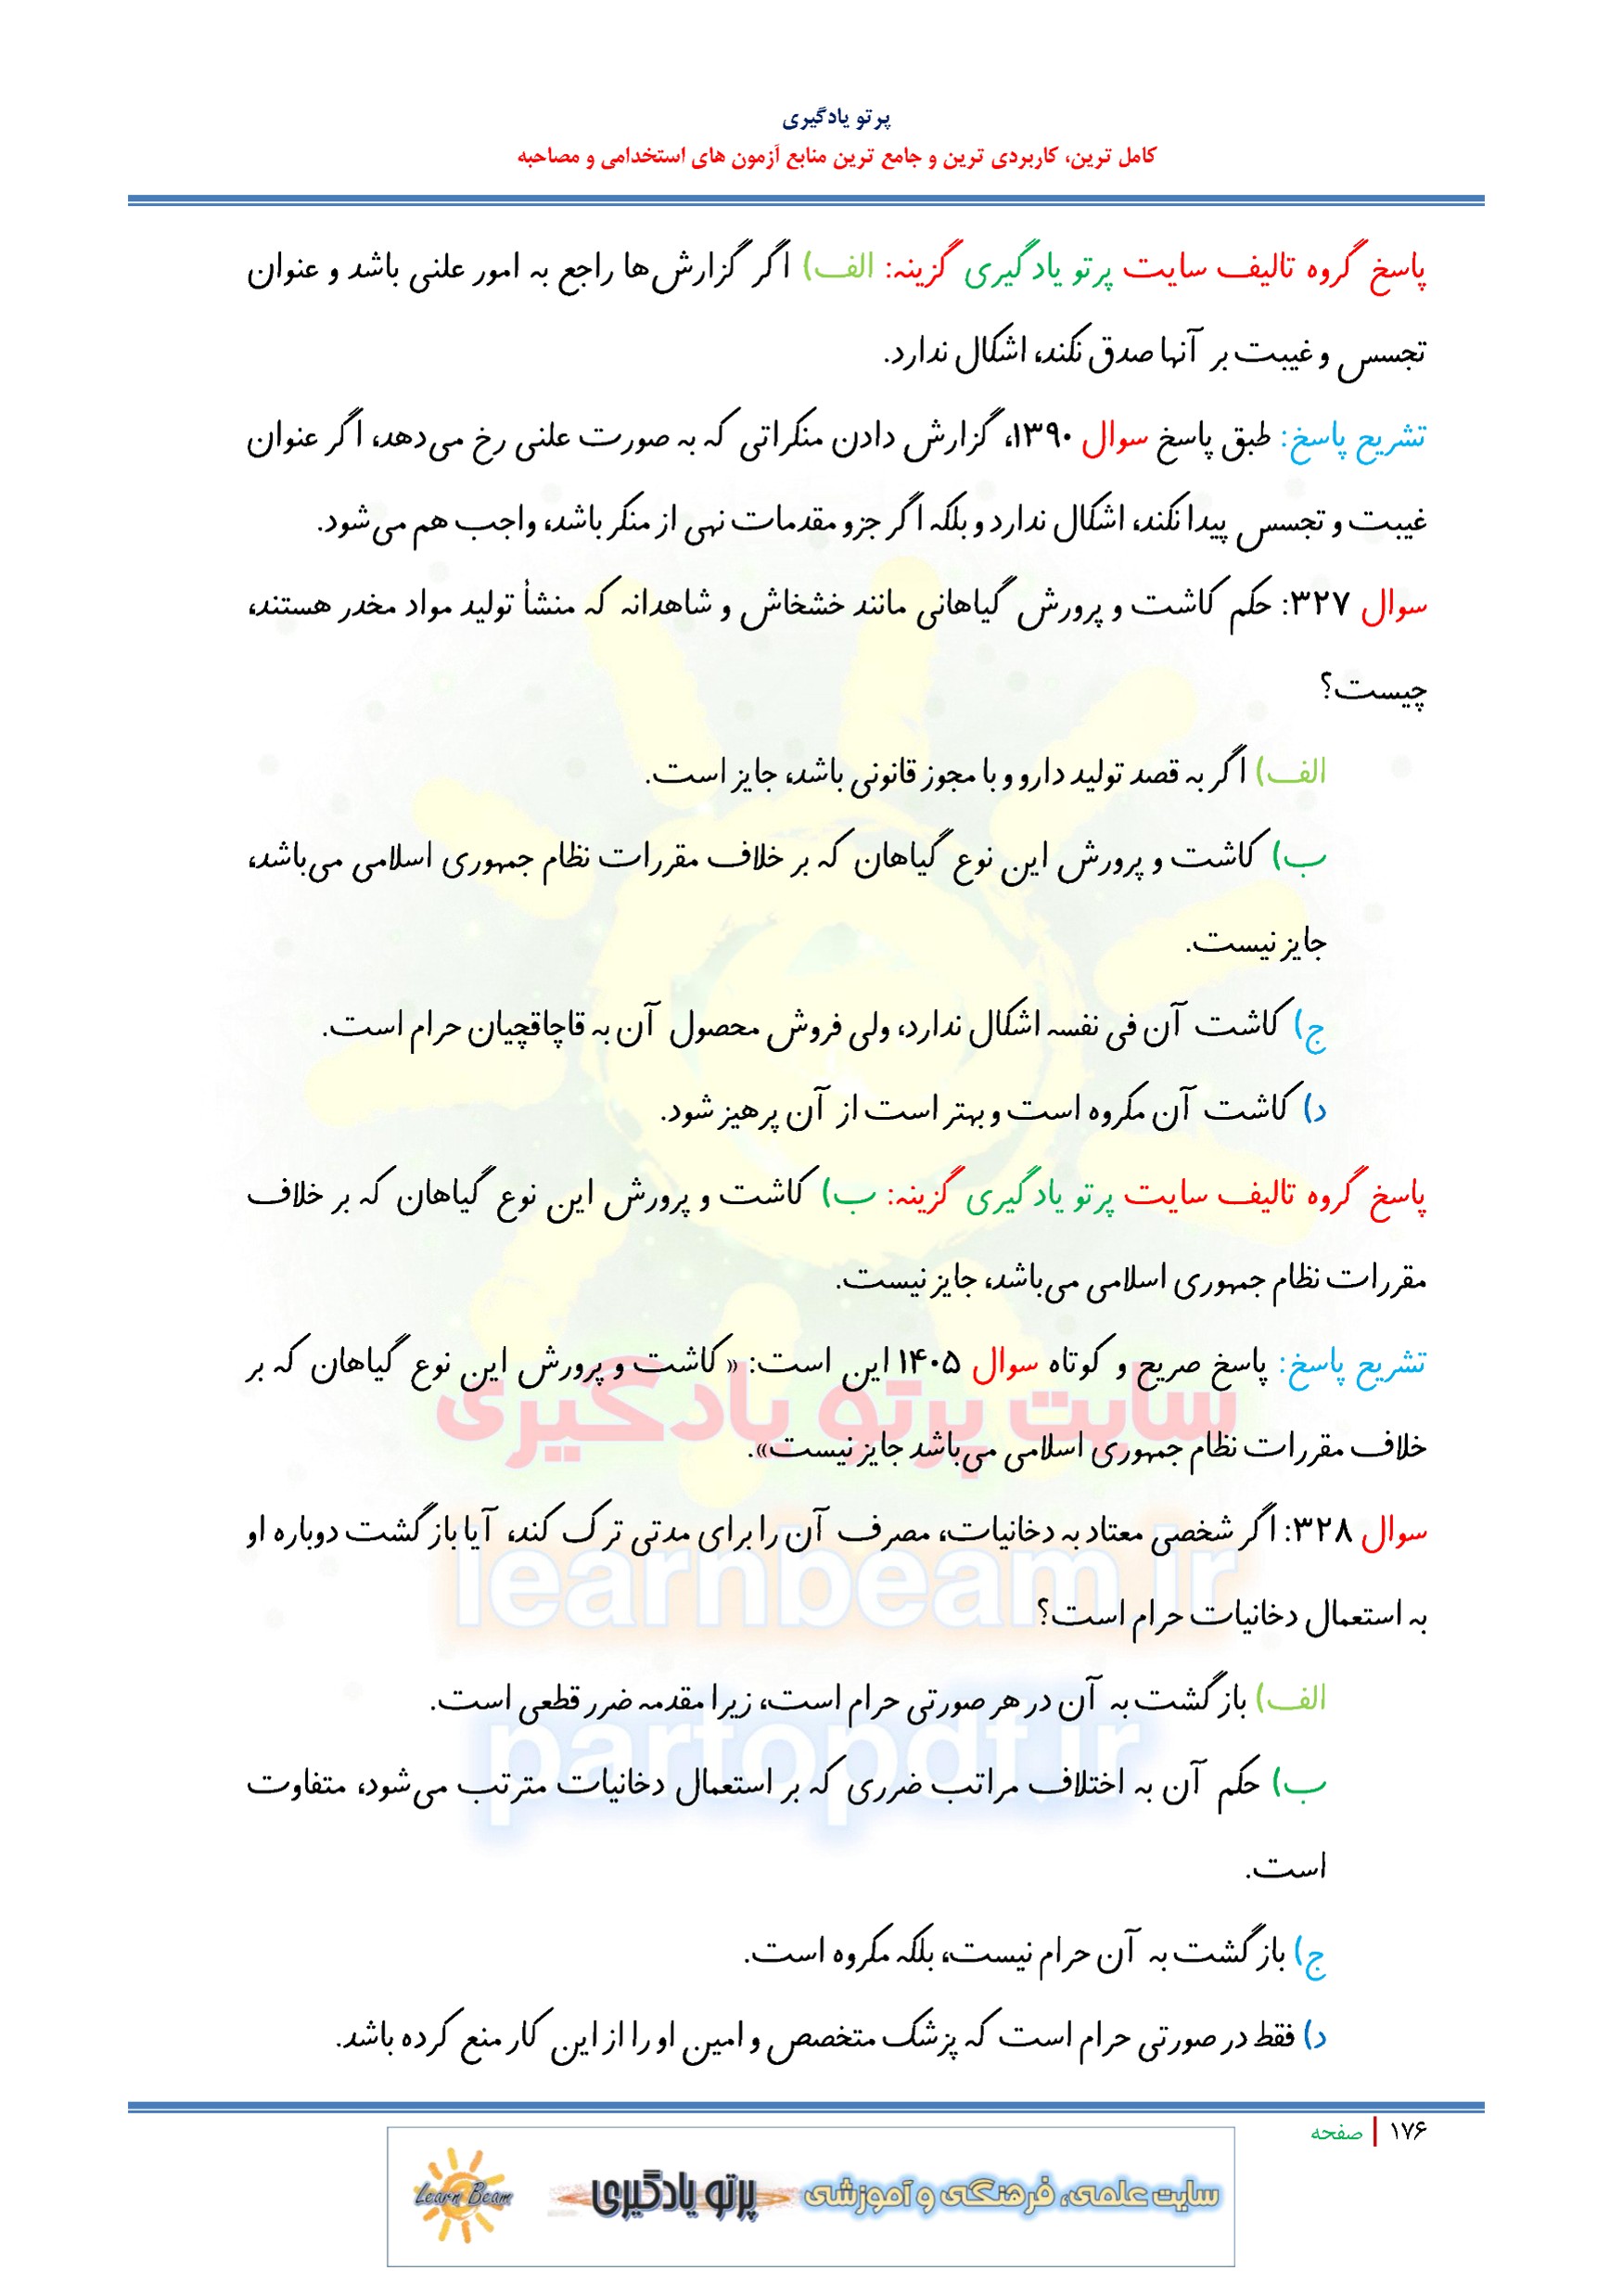 پرتو یادگیری
کامل ترین، کاربردی ترین و جامع ترین منابع آزمون های استخدامی و مصاحبه
پاسخ گروه تالیف سایت پرتو یادگیری گزینه: الف) اگر گزارش‌ها راجع به امور علنی باشد و عنوان
تجسس و غیبت بر آنها صدق نکند، اشکال ندارد.
تشریح پاسخ: طبق پاسخ سوال ۱۳۹۰، گزارش دادن منکراتی که به صورت علنی رخ می‌دهد، اگر عنوان
غیبت و تجسس پیدا نکند، اشکال ندارد و بلکه اگر جزو مقدمات نهی از منکر باشد، واجب هم می‌شود.
سوال ۳۲۷: حکم کاشت و پرورش گیاهانی مانند خشخاش و شاهدانه که منشأ تولید مواد مخدر هستند،
چیست؟
الف) اگر به قصد تولید دارو و با مجوز قانونی باشد، جایز است.
ب) کاشت و پرورش این نوع گیاهان که بر خلاف مقررات نظام جمهوری اسلامی می‌باشد،
جایز نیست.
ج) کاشت آن فی نفسه اشکال ندارد، ولی فروش محصول آن به قاچاقچیان حرام است.
د) کاشت آن مکروه است و بهتر است از آن پرهیز شود.
پاسخ گروه تالیف سایت پرتو یادگیری گزینه: ب) کاشت و پرورش این نوع گیاهان که بر خلاف
مقررات نظام جمهوری اسلامی می‌باشد، جایز نیست.
تشریح پاسخ: پاسخ صریح و کوتاه سوال ۱۴۰۵ این است: «کاشت و پرورش این نوع گیاهان که بر
سایت پرتو یادگیری
خلاف مقررات نظام جمهوری اسلامی می‌باشد جایز نیست».
سوال ۳۲۸: اگر شخصی معتاد به دخانیات، مصرف آن را برای مدتی ترک کند، آیا بازگشت دوباره او
learnbeam.ir
به استعمال دخانیات حرام است؟
الف) بازگشت به آن در هر صورتی حرام است، زیرا مقدمه ضرر قطعی است.
partopdf.ir
ب) حکم آن به اختلاف مراتب ضرری که بر استعمال دخانیات مترتب می‌شود، متفاوت
است.
ج) بازگشت به آن حرام نیست، بلکه مکروه است.
د) فقط در صورتی حرام است که پزشک متخصص و امین او را از این کار منع کرده باشد.
۱۷۶ | صفحه
سایت علمی، فرهنگی و آموزشی پرتو یادگیری Learn Beam